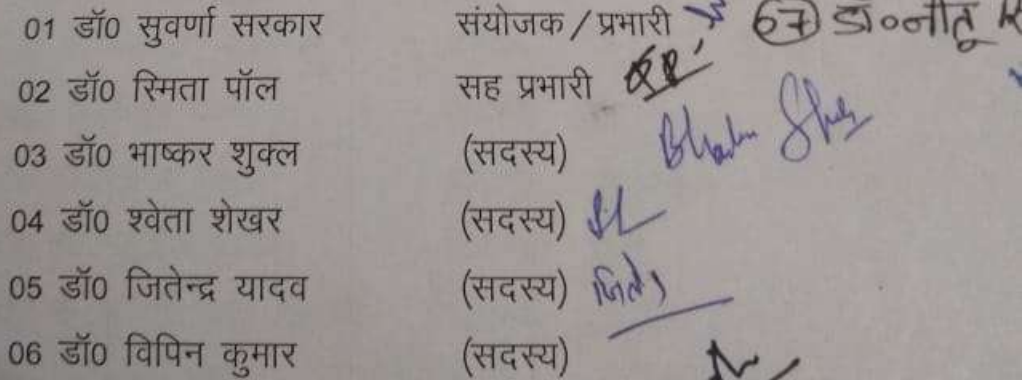 01 डॉ0 सुवर्णा सरकार संयोजक / प्रभारी 67 डॉ०नीतू
02 डॉ0 स्मिता पॉल सह प्रभारी
03 डॉ0 भाष्कर शुक्ल (सदस्य)
04 डॉ0 श्वेता शेखर (सदस्य)
05 डॉ0 जितेन्द्र यादव (सदस्य)
06 डॉ0 विपिन कुमार (सदस्य)